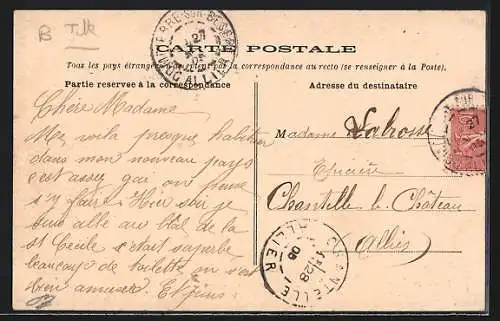 B Tilk
PIERRE-SUR-BESBRE
27
05
ALLIER
CARTE POSTALE
Tous les pays étrangers n'acceptent pas la correspondance au recto (se renseigner à la Poste).
Partie réservée à la correspondance
Adresse du destinataire
Chère Madame
Me voila presque habituée
dans mon nouveau pays
c'est assez que on puisse
s'y faire. Hier soir je
suis allé au bal de la
St Cécile c'était superbe
beaucoup de toilette on s'est
bien amusée. Et
Madame Lahosse
Epicière
Chantelle le Château
Allier
CHANTELLE
28
05
ALLIER